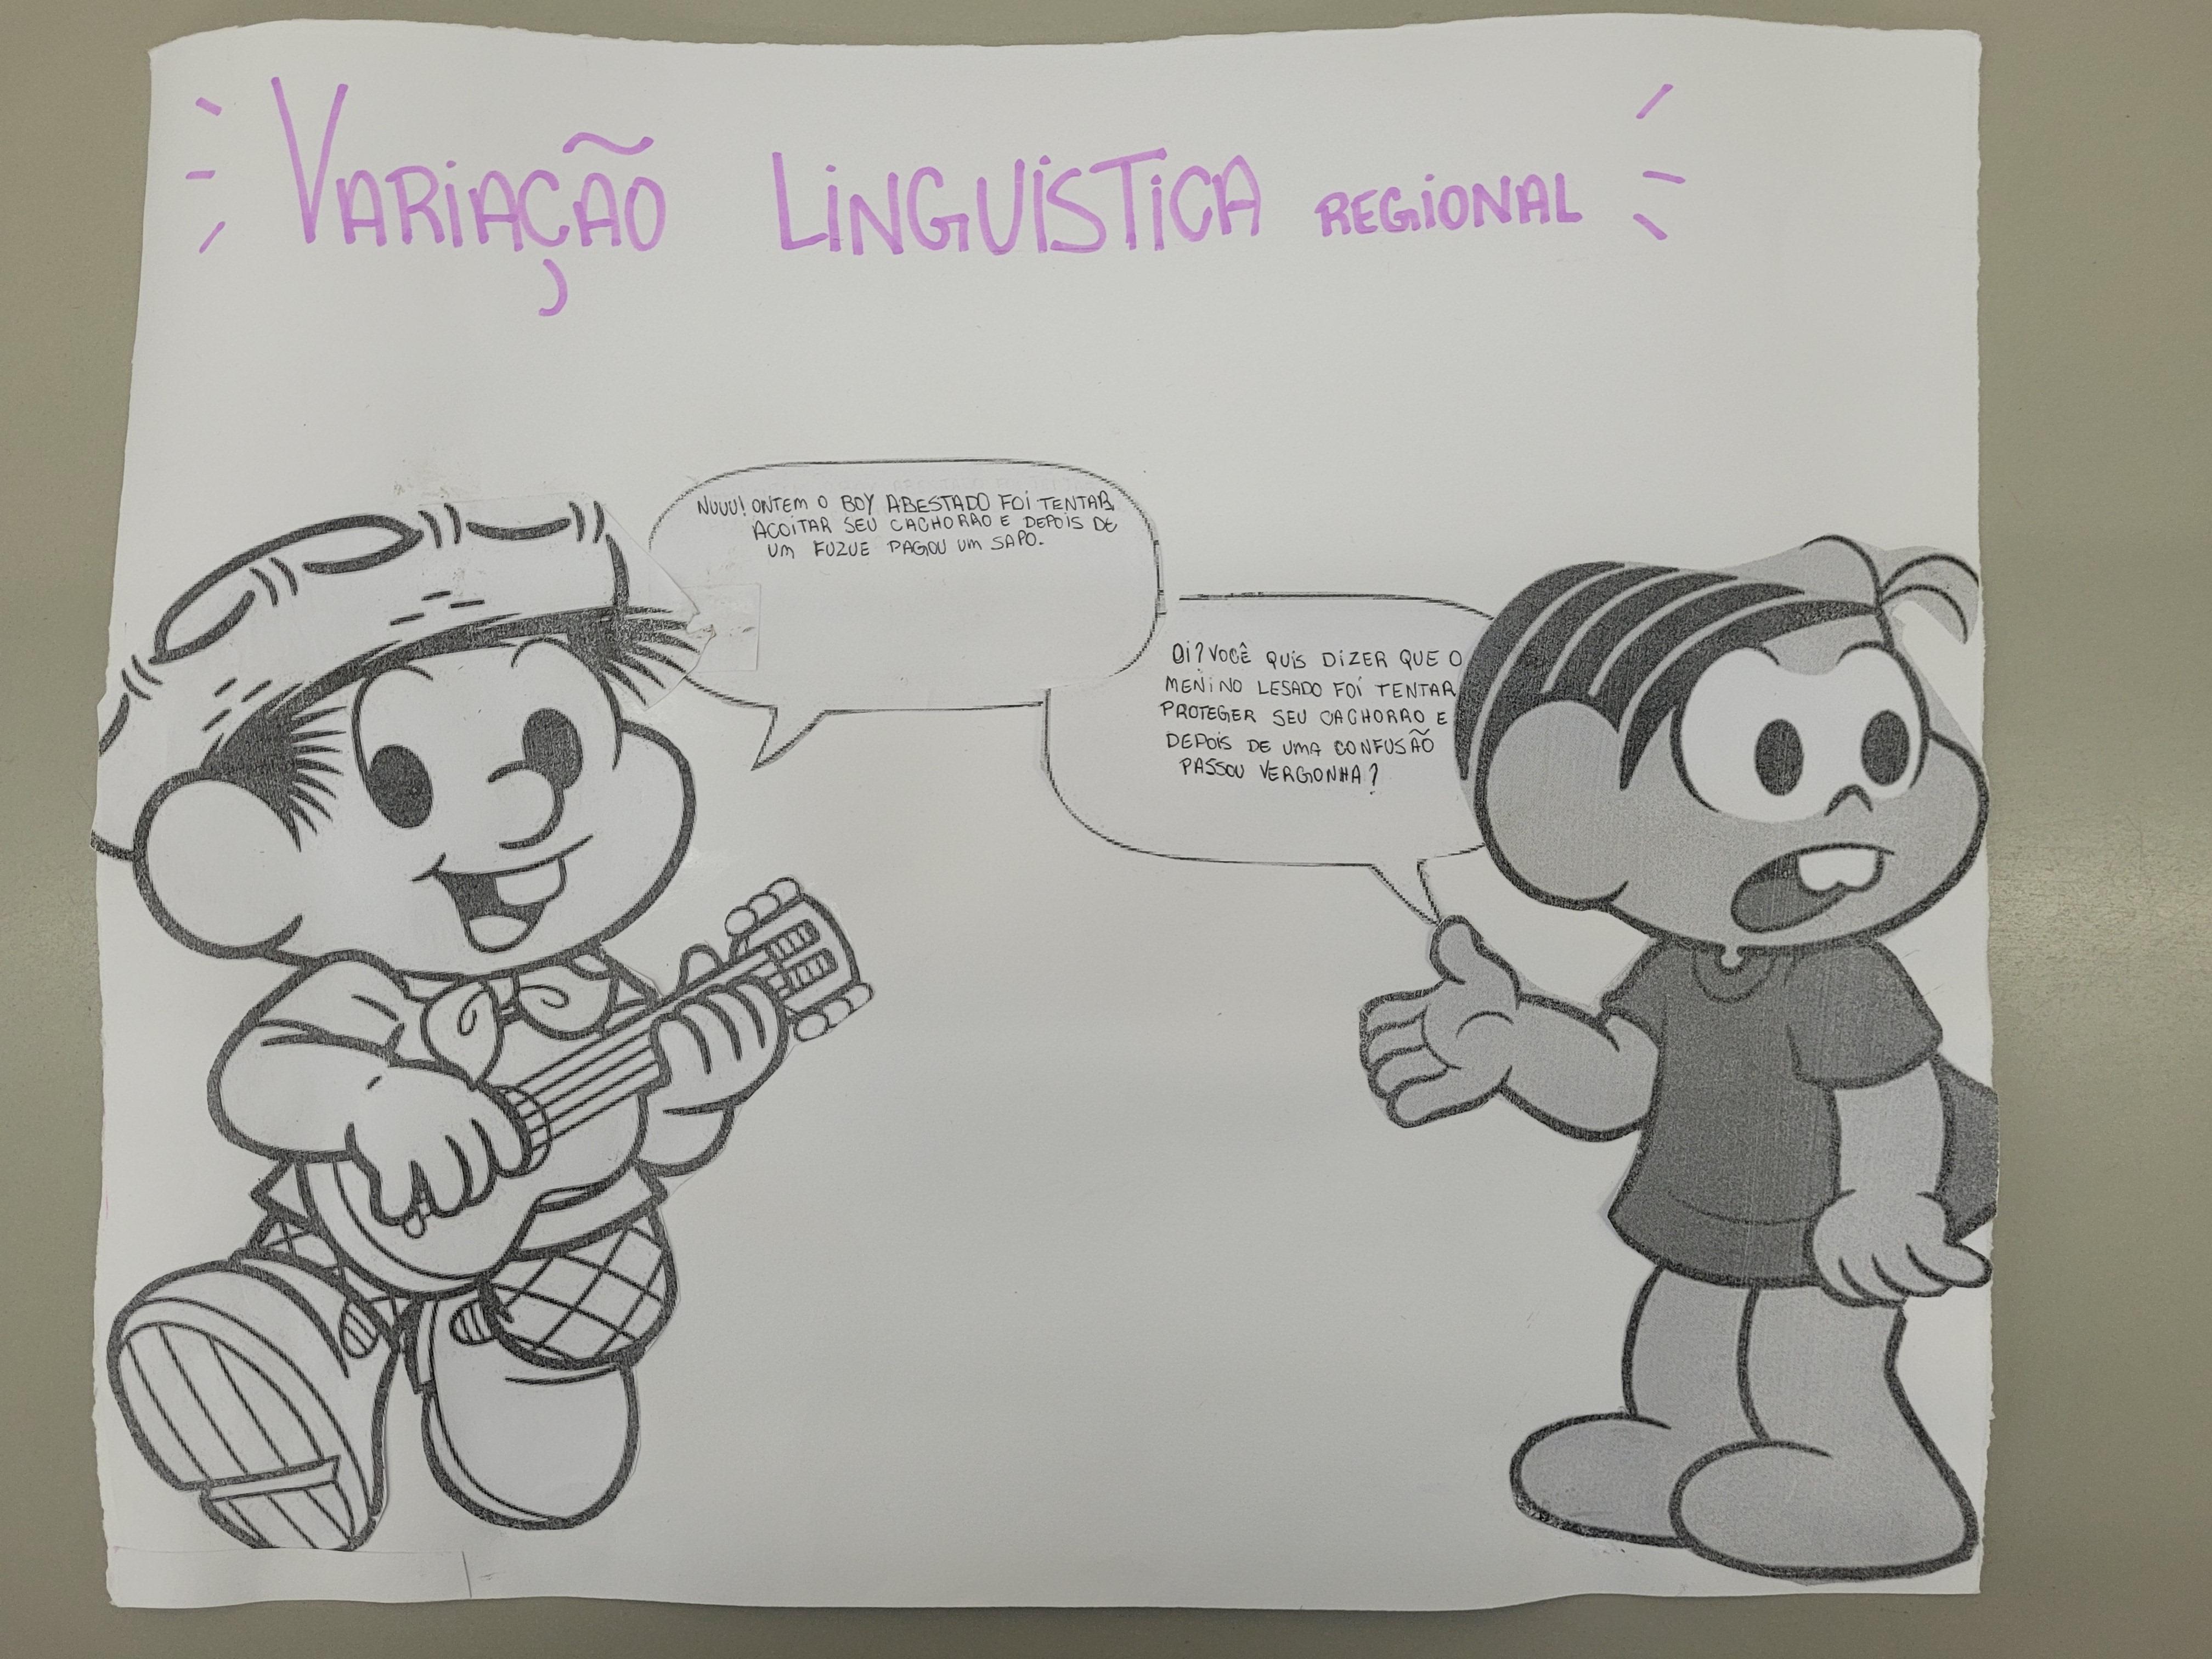 VARIAÇÃO LINGUÍSTICA REGIONAL
NUUU! ONTEM O BOY ABESTADO FOI TENTAR
ACOITAR SEU CACHORRO E DEPOIS DE
UM FUZUE PAGOU UM SAPO.
OI? VOCÊ QUIS DIZER QUE O
MENINO LESADO FOI TENTAR
PROTEGER SEU CACHORRO E
DEPOIS DE UMA CONFUSÃO
PASSOU VERGONHA?